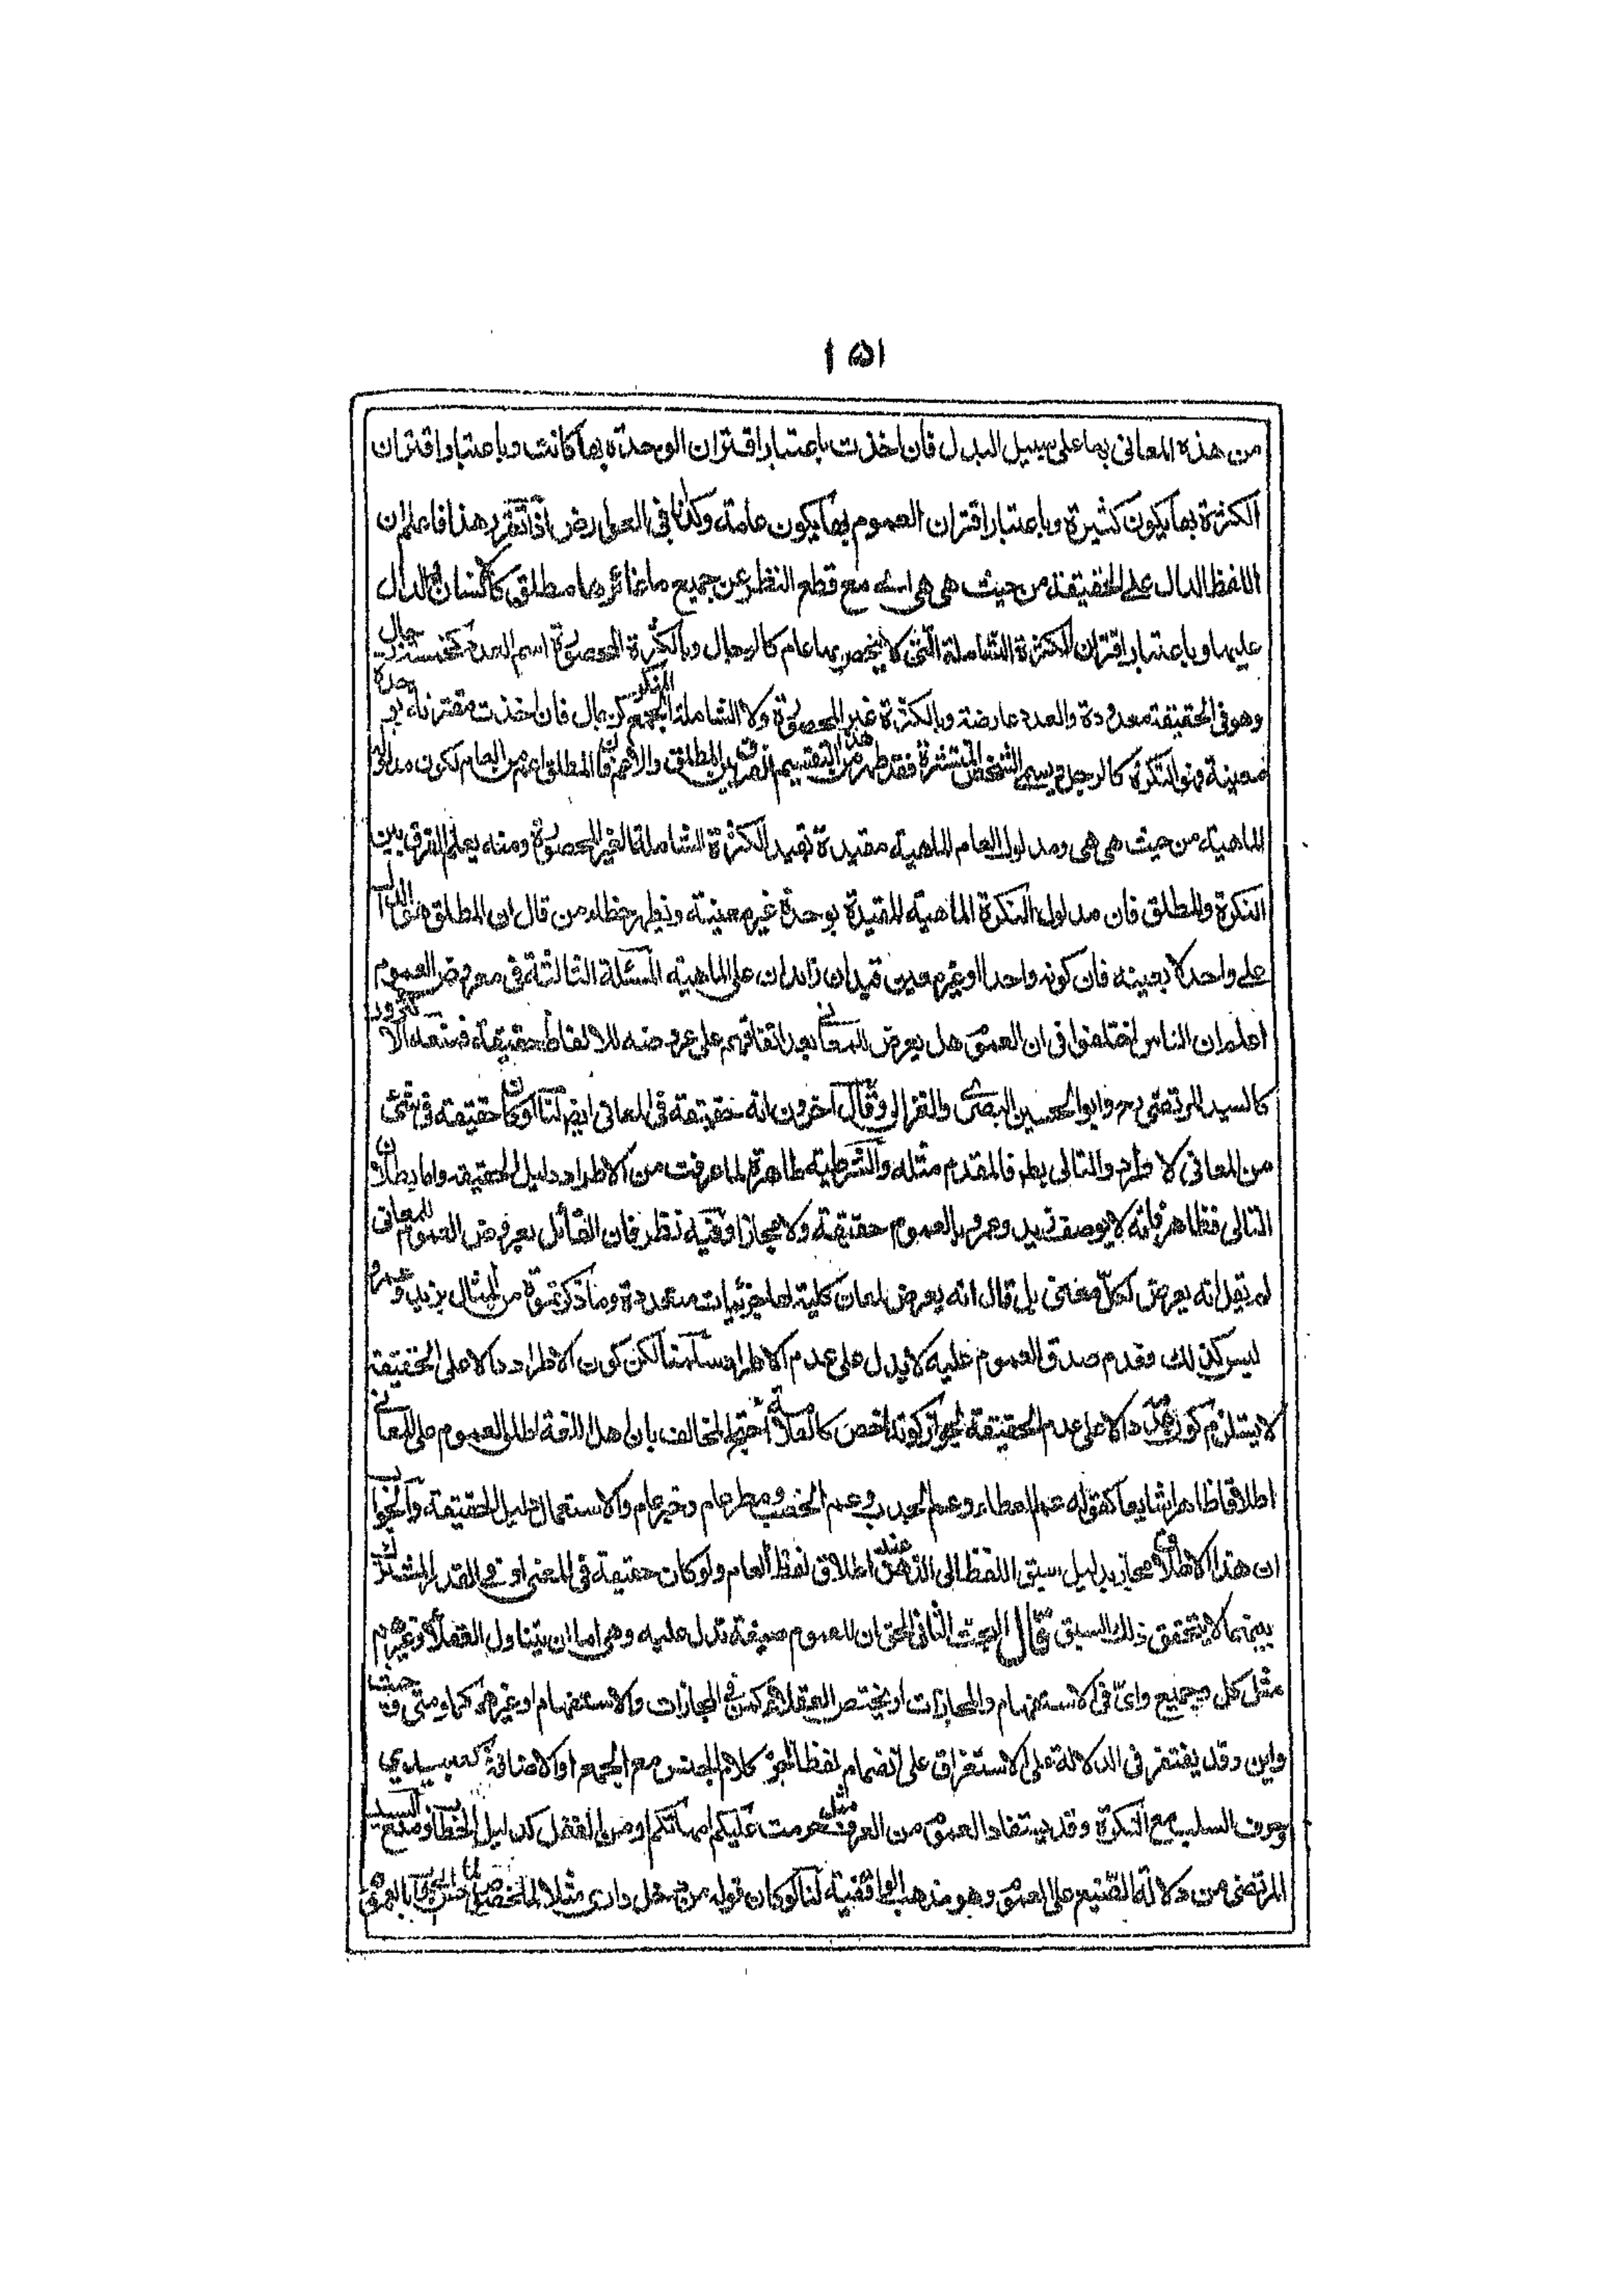 ١٥١
من هذه المعانى بها على سبيل البدل فان اخذت باعتبار اقتران الوحدة بها كانت وباعتبار اقتران
الكثرة بها يكون كثيرة وباعتبار اقتران العموم بها يكون عامة وكذا فى العوارض اذا تقرر هذا فاعلم ان
اللفظ الدال على الحقيقة من حيث هى هى اى مع قطع النظر عن جميع ما غائرها مطلق كالانسان الدال
عليها وباعتبار اقتران الكثرة الشاملة التى لا ينحصر بها عام كالرجال وبالكثرة المحصورة اسم العدد كخمسة رجال
وهو فى الحقيقة معدودة والعدد عارضة وبالكثرة غير المحصورة ولا الشاملة الجمع المنكر كرجال فان اخذت مقترنة بوحدة
معينة فهو النكرة كالرجل ويسمى الشخص المنتشرة فقد ظهر من هذا التقسيم الفرق بين المطلق والاعم فان المطلق اعم من العام لكون مدلوله
الماهية من حيث هى هى ومدلول العام الماهية مقيدة بقيد الكثرة الشاملة الغير المحصورة ومنه يعلم الفرق بين
النكرة والمطلق فان مدلول النكرة الماهية المقيدة بوحدة غير معينة ويظهر خطاء من قال ان المطلق هو الدال
على واحد لا بعينه فان كونه واحدا وغير معين قيدان زايدان على الماهية المسئلة الثالثة فى معروض العموم
اعلم ان الناس اختلفوا فى ان العموم هل يعرض للمعانى بعد اتفاقهم على عروضه للالفاظ حقيقة فمنعه الاكثرون
كالسيد المرتضى رحمه وابو الحسين البصرى والغزالى وقال آخرون انه حقيقة فى المعانى ايضا لنا لو كان حقيقة فى شئ
من المعانى لاطرد والتالى بط فالمقدم مثله والشرطية ظاهرة لما عرفت من ان الاطراد دليل الحقيقة واما بطلان
التالى فظاهر فانه لا يوصف زيد وعمرو بالعموم حقيقة ولا مجازا وفيه نظر فان القائل بعروض العموم للمعانى
لم يقل انه يعرض لكل معنى بل قال انه يعرض لمعان كلية لها جزئيات متعددة وما ذكرتموه من المثال بزيد وعمرو
ليس كذلك وعدم صدق العموم عليه لا يدل على عدم الاطراد سلمنا لكن كون الاطراد دالا على الحقيقة
لا يستلزم كون عدمه دالا على عدم الحقيقة لجواز كونه اخص كالعلامة احتج المخالف بان اهل اللغة اطلقوا العموم على المعانى
اطلاقا ظاهرا شايعا كقوله عم العطاء وعم الجدب وعم الخصب ومطر عام وخير عام والاستعمال دليل الحقيقة والجواب
ان هذا الاطلاق مجاز بدليل سبق اللفظ الى الذهن عند اطلاق لفظ العام ولو كان حقيقة فى المعنى او فى القدر المشترك
بينهما لا يتحقق ذلك السبق قال البحث الثانى الحق ان للعموم صيغة تدل عليه وهى اما ان يتناول العقلاء وغيرهم
مثل كل وجميع واى فى الاستفهام والمجازات او يختص العقلاء كمن فى المجازات والاستفهام او غيرهم كما ومتى وحيث
واين وقد يفتقر فى الدلالة على الاستغراق على انضمام لفظ آخر كلام الجنس مع الجمع او الاضافة كعبيدى
وحرف السلب مع النكرة وقد يستفاد العموم من العرف مثل حرمت عليكم امهاتكم او من العقل كدليل الخطاب ومنع السيد
المرتضى من دلالة الصيغ على العموم وهو مذهب الواقفية لنا لو كان قوله من دخل دارى مثلا للخصوص لما حسن الجواب بالعموم